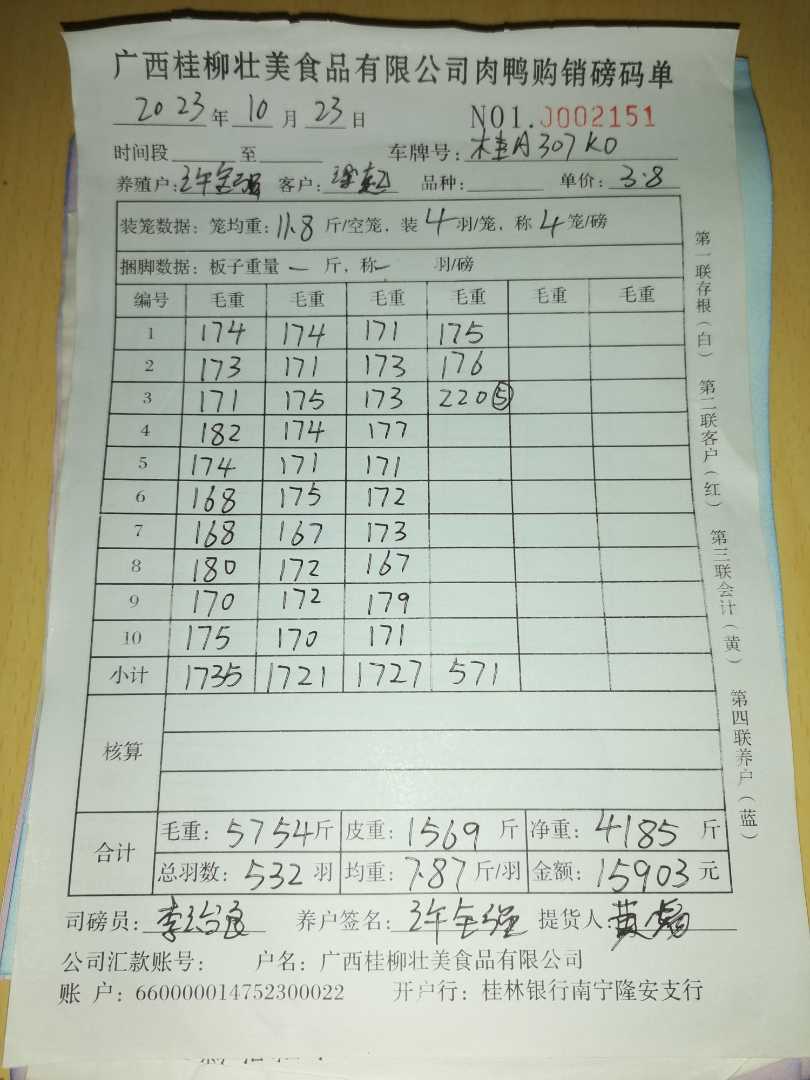 广西桂柳壮美食品有限公司肉鸭购销磅码单
2023年 10 月 23 日 NO1.0002151
时间段 至 车牌号: 桂A307K0
养殖户: 客户: 品种: 单价: 3.8
装笼数据: 笼均重: 11.8 斤/空笼, 装 4 羽/笼, 称 4 笼/磅
捆脚数据: 板子重量 一 斤, 称一 羽/磅
编号 毛重 毛重 毛重 毛重 毛重 毛重
1 174 174 171 175
2 173 171 173 176
3 171 175 173 220⑤
4 182 174 177
5 174 171 171
6 168 175 172
7 168 167 173
8 180 172 167
9 170 172 179
10 175 170 171
小计 1735 1721 1727 571
核算
合计
毛重: 5754斤 皮重: 1569 斤 净重: 4185 斤
总羽数: 532 羽 均重: 7.87 斤/羽 金额: 15903 元
司磅员: 养户签名: 提货人:
公司汇款账号: 户名: 广西桂柳壮美食品有限公司
账 户: 660000014752300022 开户行: 桂林银行南宁隆安支行
第一联存根(白) 第二联客户(红) 第三联会计(黄) 第四联养户(蓝)